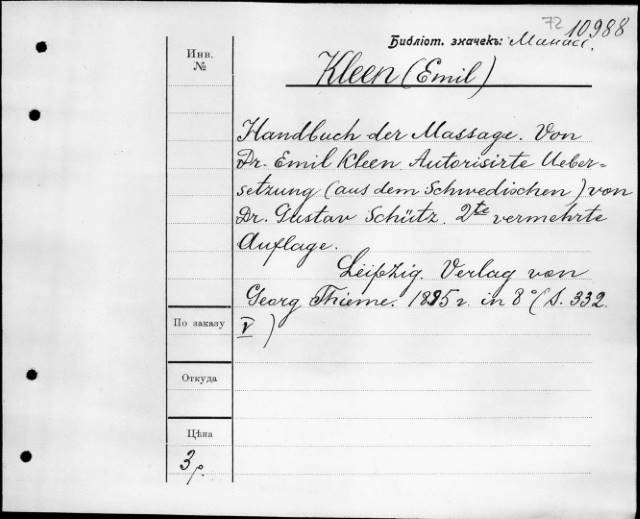 72 10988
Библіот. значекъ: Манас.
Инв.
№
Kleen (Emil)
Handbuch der Massage. Von
Dr. Emil Kleen. Autorisirte Ueber=
setzung (aus dem Schwedischen) von
Dr. Gustav Schütz. 2te vermehrte
Auflage.
Leipzig. Verlag von
Georg Thieme. 1895 г. in 8° (S. 332.
По заказу
V)
Откуда
Цѣна
3 р.